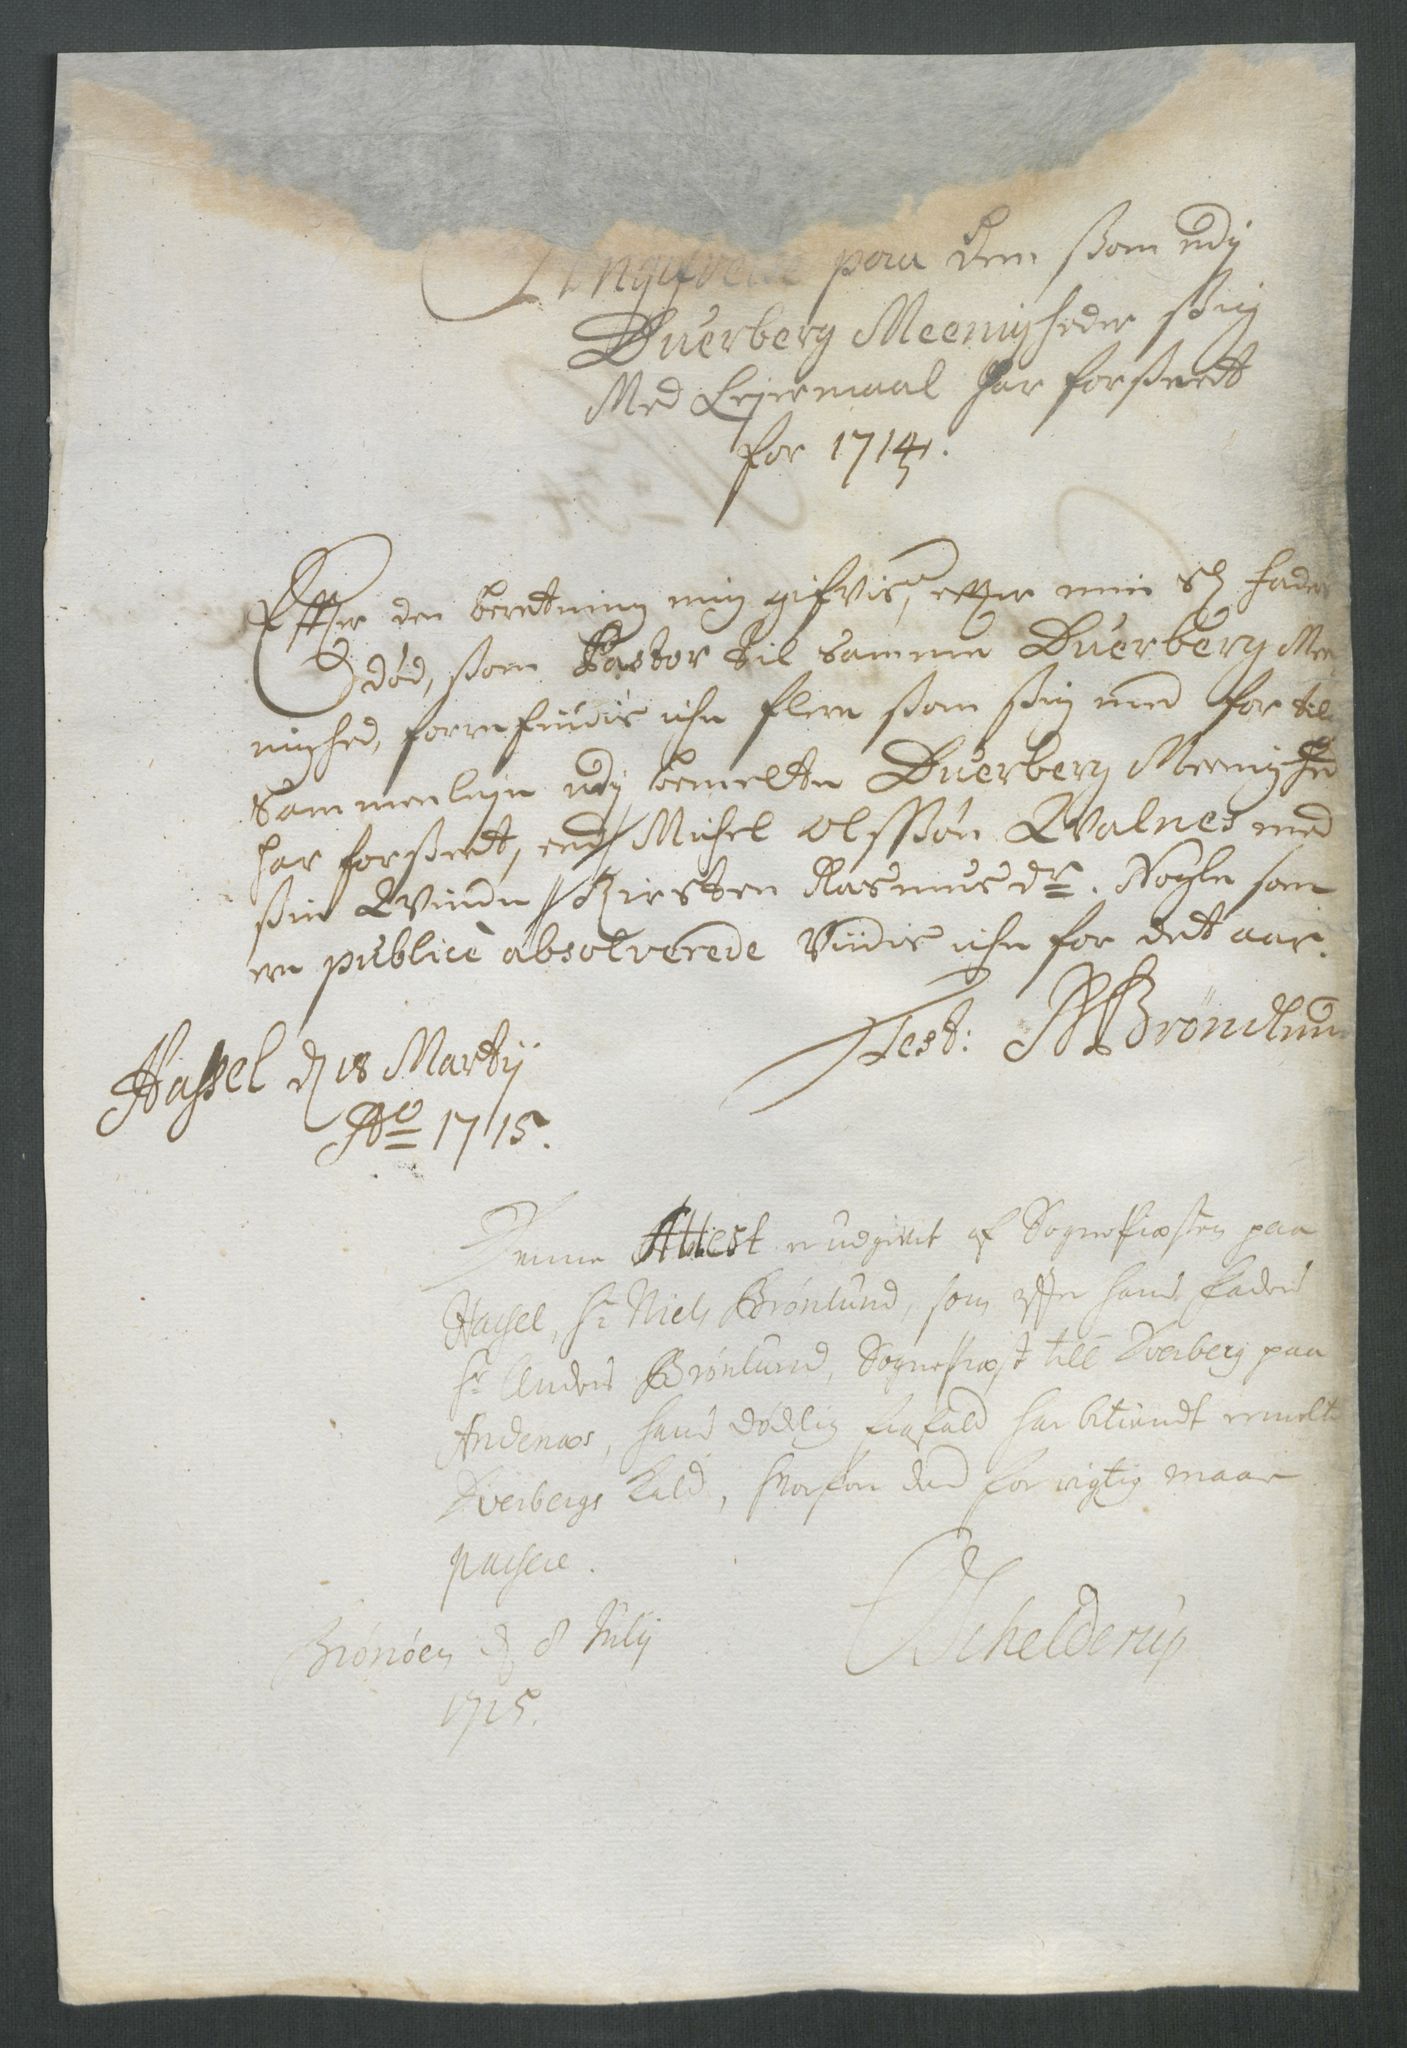 Angifvelse paa dem som udj
Duerberg Meenigheder sig
Med Leyermaal har forseedt
for 1714.
Efter den beretning mig gifvis, efter min Sl Fader
død, som Pastor til samme Duerberg Mee
nighed, forrefindis iche flere som sig med for tilig
Sammenleye udj bemelte Duerberg Meenighe
har forseet, end Michel Olssøn Qvalnes med
sin Qvinde Kirsten Rasmusdr. Nogle som
ere publicè absolverede viides iche for det aar.
Test: N Brönlun
Hassel d 18 Martij
Ao 1715.
Denne Attest er udgivet af Sognepræsten paa
Hassel, Hr Niels Brönlund, som efter hans faders
Hr Anders Brönlund, Sognepræst till Dverberg paa
Andenæs, hans dødelig frafald har betiendt ermelte
Dverbergs kald, hvorfor den for rigtig maae
passere.
Brönöen d 8 Julij
1715.
Schelderup